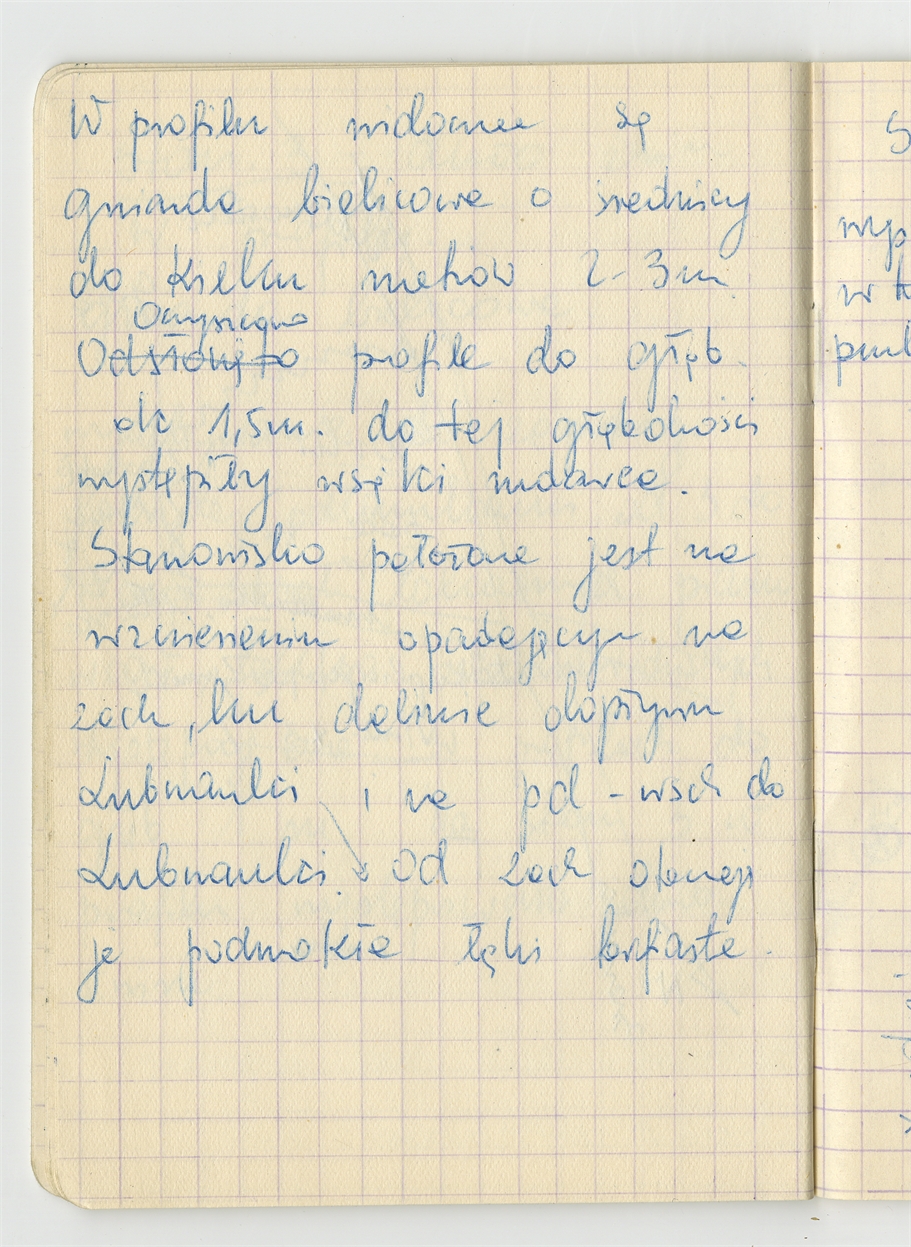 W profilu widoczne są
gniazda bielicowe o średnicy
do kilku metrów 2-3m.
Oczyszczono
Odsłonięto profile do głęb.
ok 1,5m. do tej głębokości
wystąpiły wsięki
Stanowisko położone jest na
wzniesieniu opadającym na
zach, ku dolinie dopływu
Lubniauki i na pd-wsch do
Lubniauki. Od zach otaczają
je podmokłe łąki torfiaste.
S
wyp
w t
pun